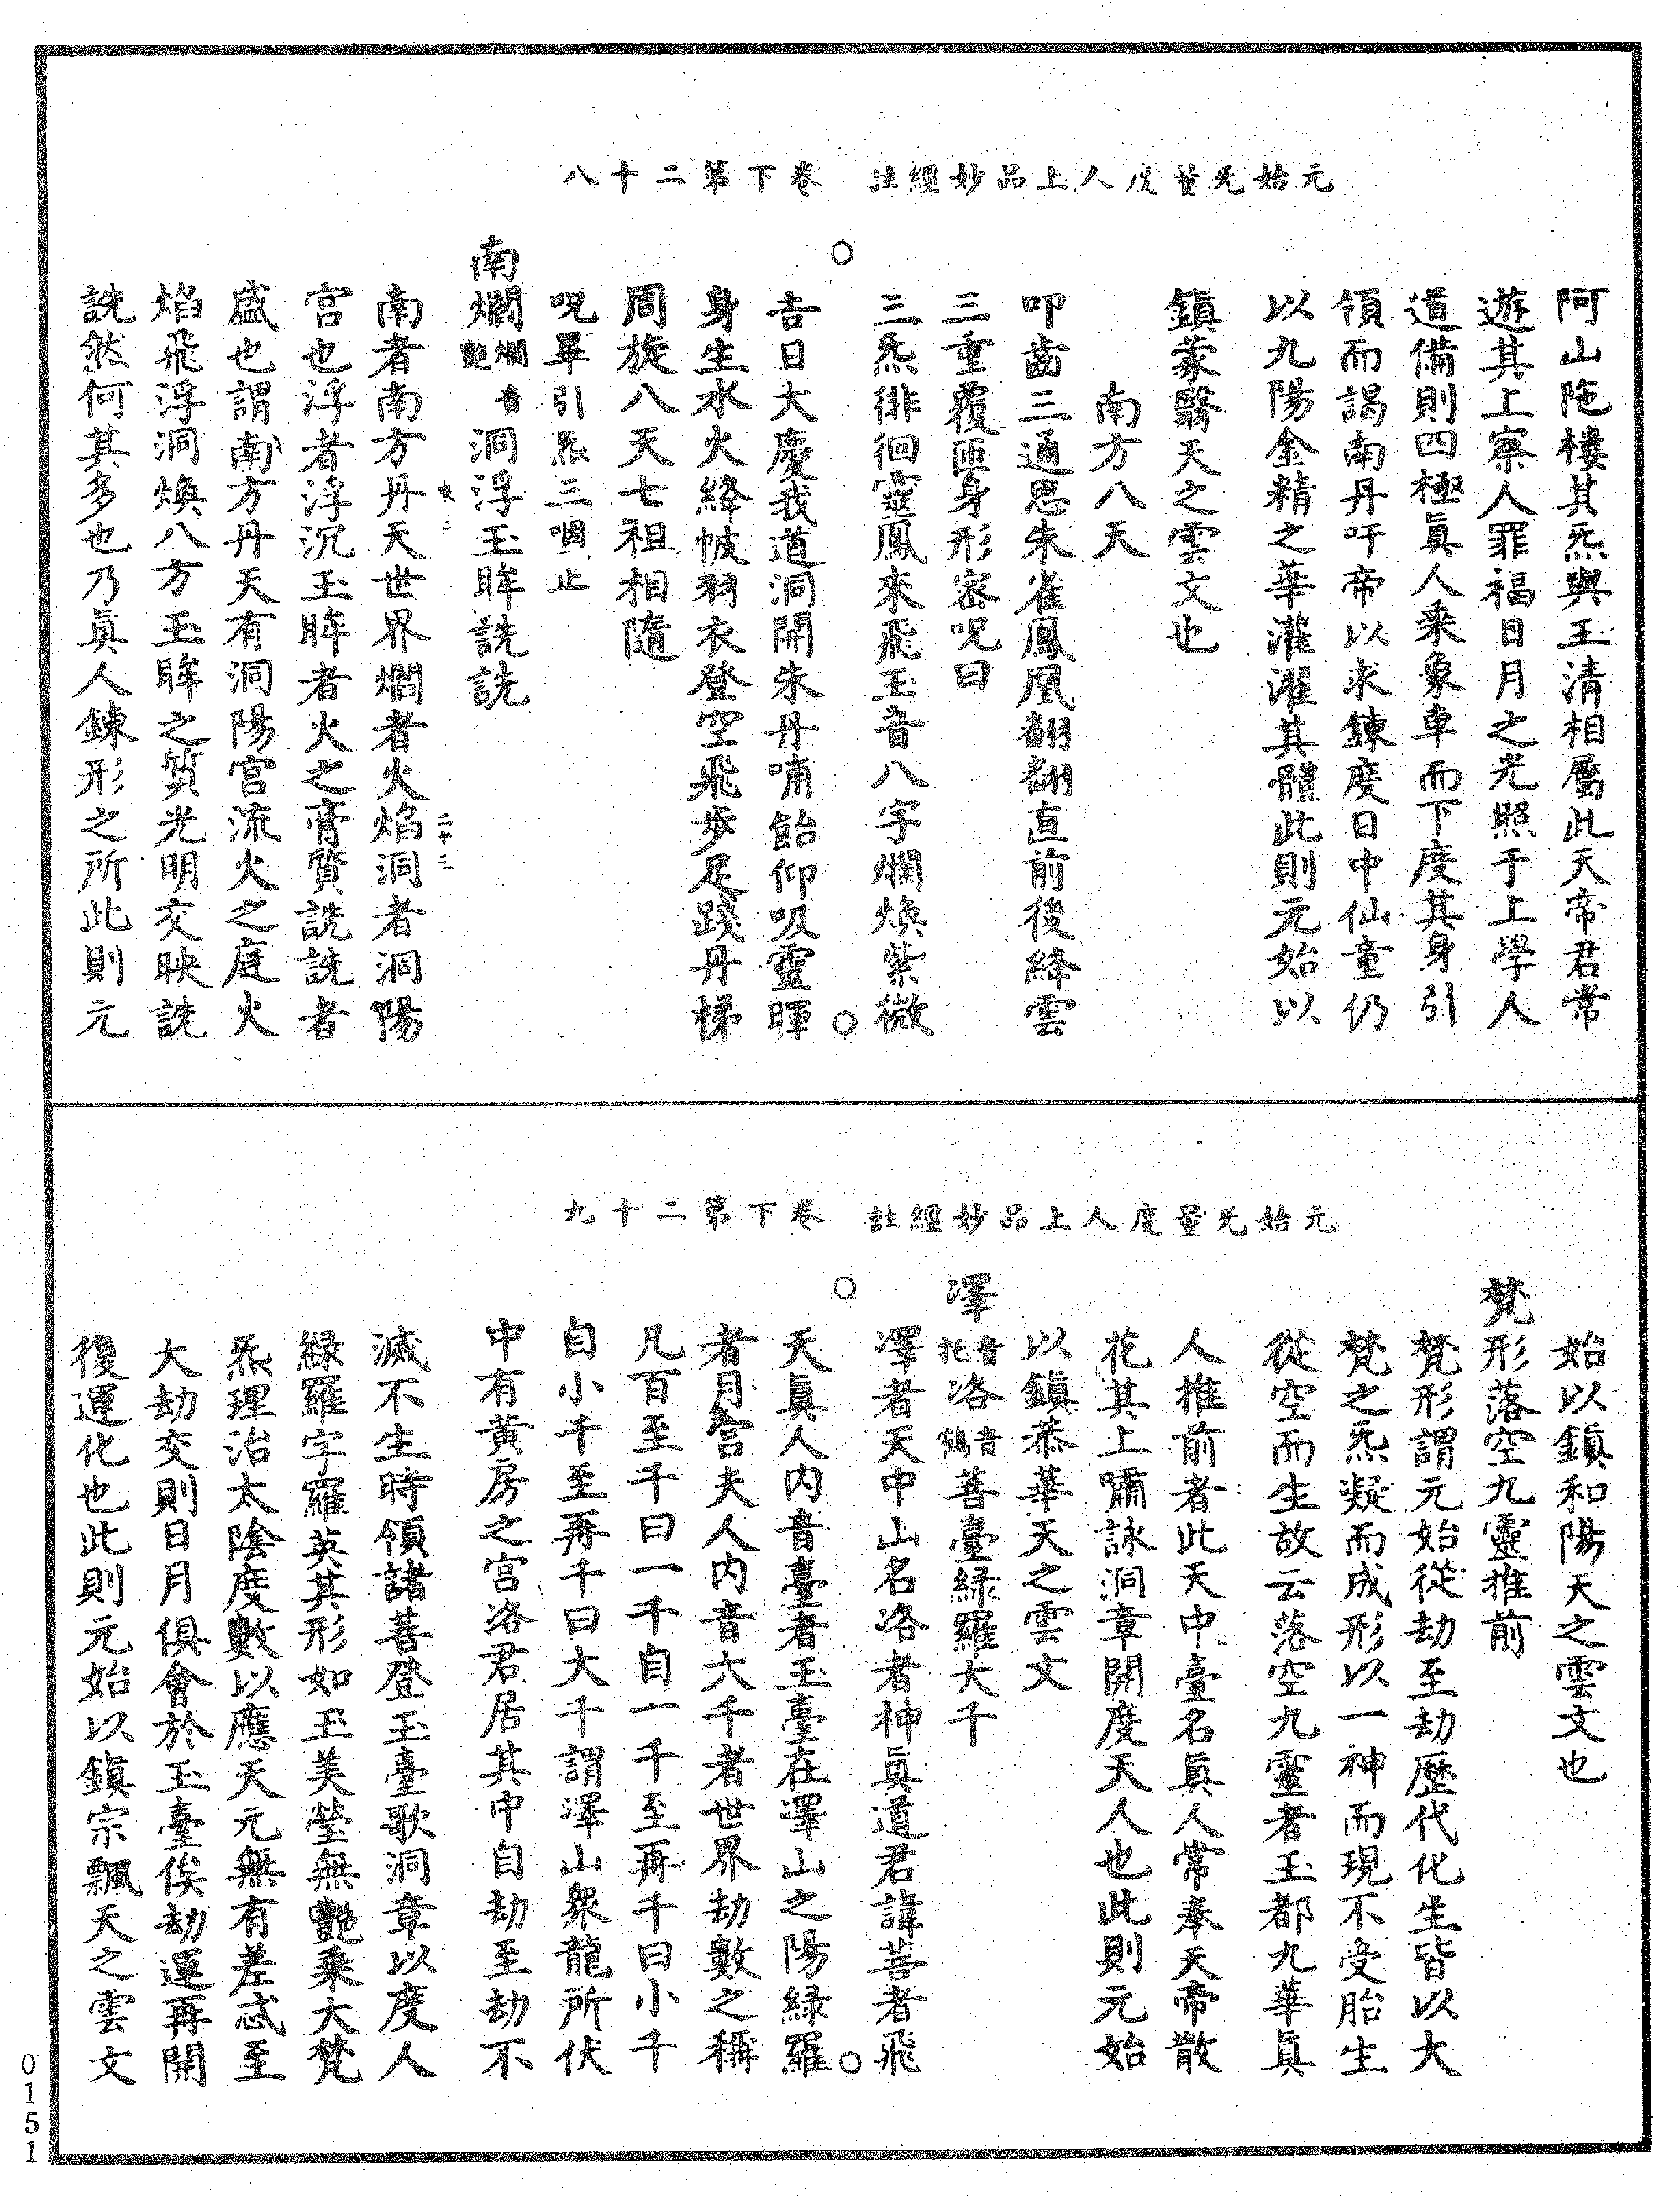 元始无量度人上品妙經註　卷下第二十八
阿山陁樓其炁與玉清相屬此天帝君常
遊其上察人罪福日月之光照于上學人
道備則四極眞人乘象車而下度其身引
領而謁南丹吁帝以求鍊度日中仙童仍
以九陽金精之華灌濯其體此則元始以
鎮蒙翳天之雲文也
南方八天
叩齒三通思朱雀鳳凰翻翻直前後絳雲
三重覆匝身形密呪曰
三炁徘徊靈鳳來飛玉音八字爛煥紫微
吉日大慶我道洞開朱丹哺飴仰吸靈暉
身生水火絳帔羽衣登空飛步足躡丹梯
周旋八天七祖相隨
呪畢引炁三咽止
南爛音爛艷洞浮玉眸詵詵
南者南方丹天世界爛者火焰洞者洞陽
宮也浮者浮沉玉眸者火之膏質詵詵者
盛也謂南方丹天有洞陽宮流火之庭火
焰飛浮洞煥八方玉眸之質光明交映詵
詵然何其多也乃眞人鍊形之所此則元
二十三
元始无量度人上品妙經註　卷下第二十九
始以鎮和陽天之雲文也
梵形落空九靈推前
梵形謂元始從劫至劫歷代化生皆以大
梵之炁凝而成形以一神而現不受胎生
從空而生故云落空九靈者玉都九華眞
人推前者此天中臺名眞人常奉天帝散
花其上嘯詠洞章開度天人也此則元始
以鎮恭華天之雲文
澤音托洛音鶴菩臺緑羅大千
澤者天中山名洛者神眞道君諱菩者飛
天眞人内音臺者玉臺在澤山之陽緑羅
者月宮夫人内音大千者世界劫數之稱
凡百至千曰一千自一千至再千曰小千
自小千至再千曰大千謂澤山衆龍所伏
中有黃房之宮洛君居其中自劫至劫不
滅不生時領諸菩登玉臺歌洞章以度人
緑羅字羅英其形如玉美瑩無艷乘大梵
炁理治太陰度數以應天元無有差忒至
大劫交則日月俱會於玉臺俟劫運再開
復運化也此則元始以鎮宗飄天之雲文
0151